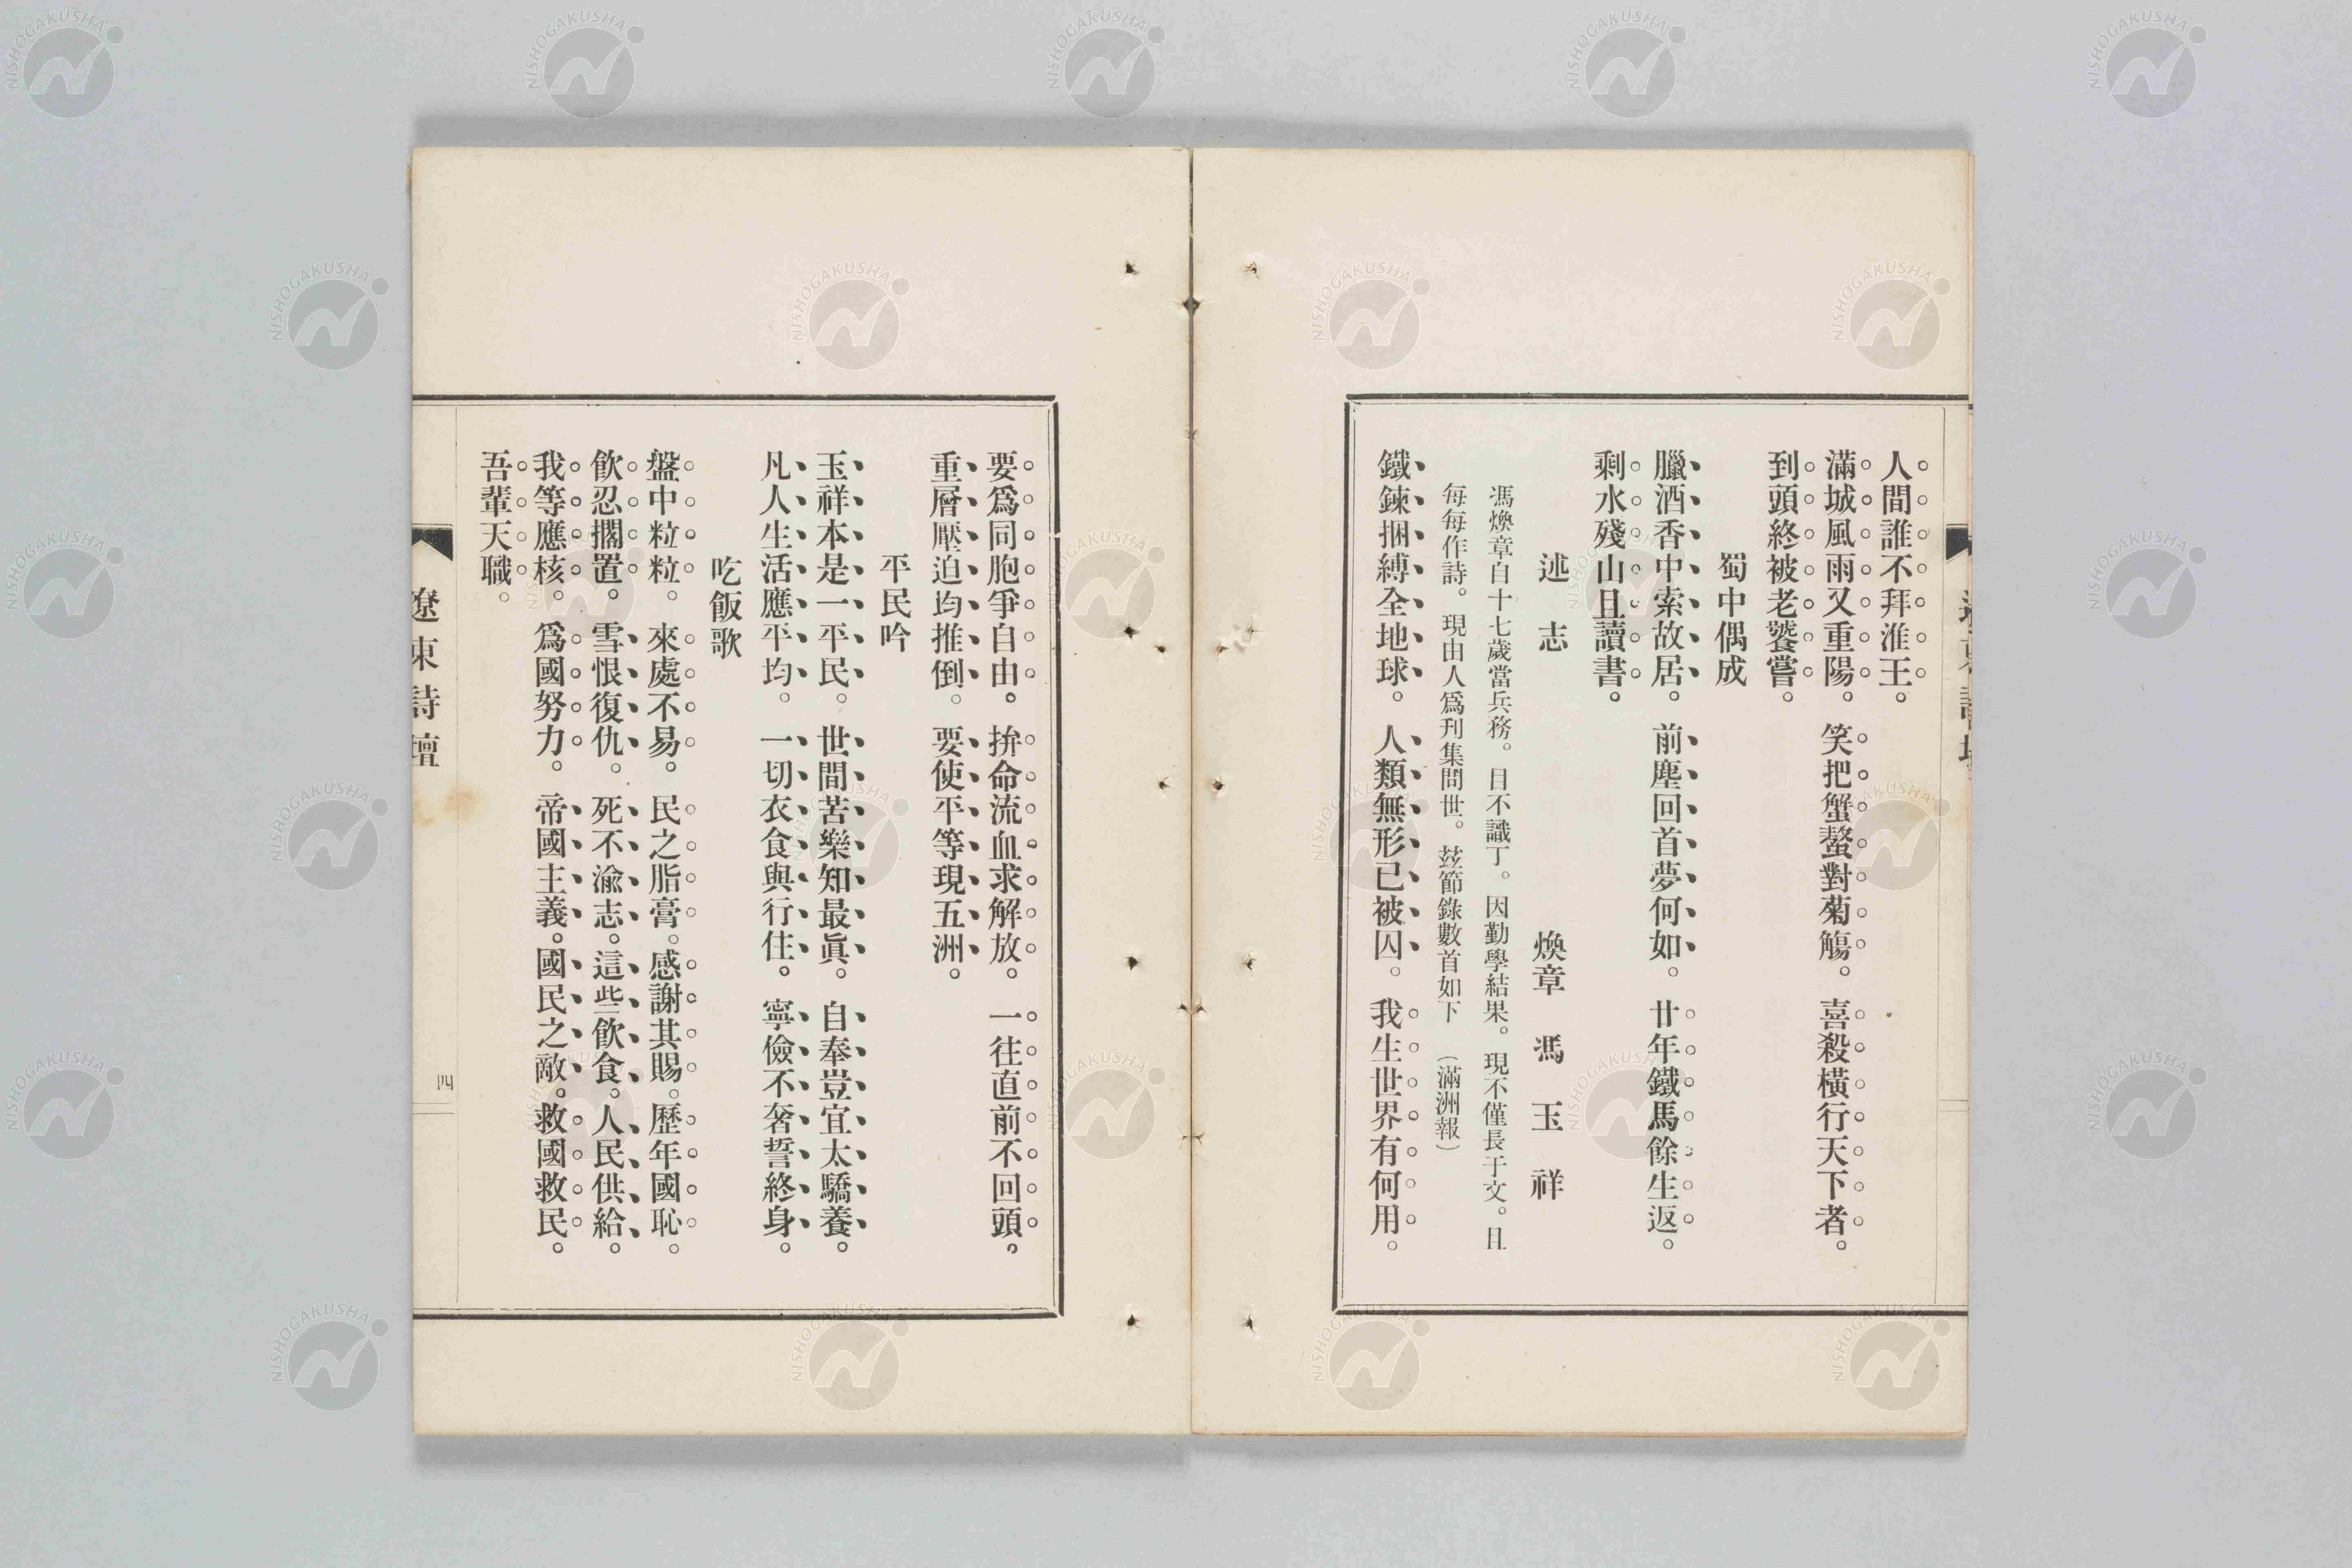 人間誰不拜淮王。
滿城風雨又重陽。笑把蟹螯對菊觴。喜殺橫行天下者。
到頭終被老饕嘗。
蜀中偶成
臘酒香中索故居。前塵回首夢何如。廿年鐵馬餘生返。
剩水殘山且讀書。
述志 煥章馮玉祥
馮煥章自十七歲當兵務。目不識丁。因勤學結果。現不僅長于文。且
每每作詩。現由人爲刊集問世。玆節錄數首如下（滿洲報）
鐵鍊捆縛全地球。人類無形已被囚。我生世界有何用。
要爲同胞爭自由。拚命流血求解放。一往直前不回頭。
重層壓迫均推倒。要使平等現五洲。
平民吟
玉祥本是一平民。世間苦樂知最眞。自奉豈宜太驕養。
凡人生活應平均。一切衣食與行住。寧儉不奢誓終身。
吃飯歌
盤中粒粒。來處不易。民之脂膏。感謝其賜。歷年國恥。
飮忍擱置。雪恨復仇。死不渝志。這些飮食。人民供給。
我等應核。爲國努力。帝國主義。國民之敵。救國救民。
吾輩天職。
遼東詩壇
四
NISHOGAKUSHA